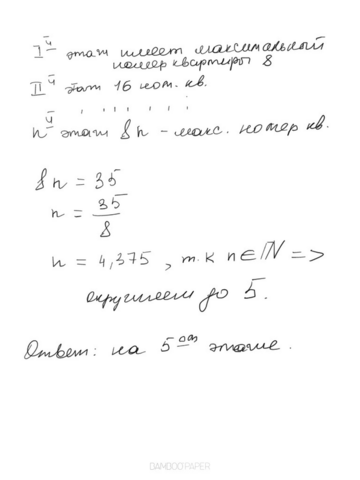 Iый этаж имеет максимальный
номер квартиры 8
IIй этаж 16 ном. кв.
nй этаж 8n - макс. номер кв.
8n = 35
n = 35/8
n = 4,375, т.к n∈ℕ =>
округляем до 5.
Ответ: на 5ом этаже.
DAMODOPAPER